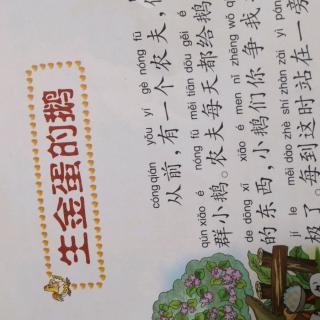 生金蛋的鹅
cóng qián yǒu yí gè nóng fū
从前，有一个农夫，
qún xiǎo é nóng fū měi tiān dōu gěi é
群小鹅。农夫每天都给鹅
de dōng xi xiǎo é men nǐ zhēng wǒ
的东西，小鹅们你争我
jí le měi dào zhè shí zhàn zài yì
极了。每到这时站在一旁